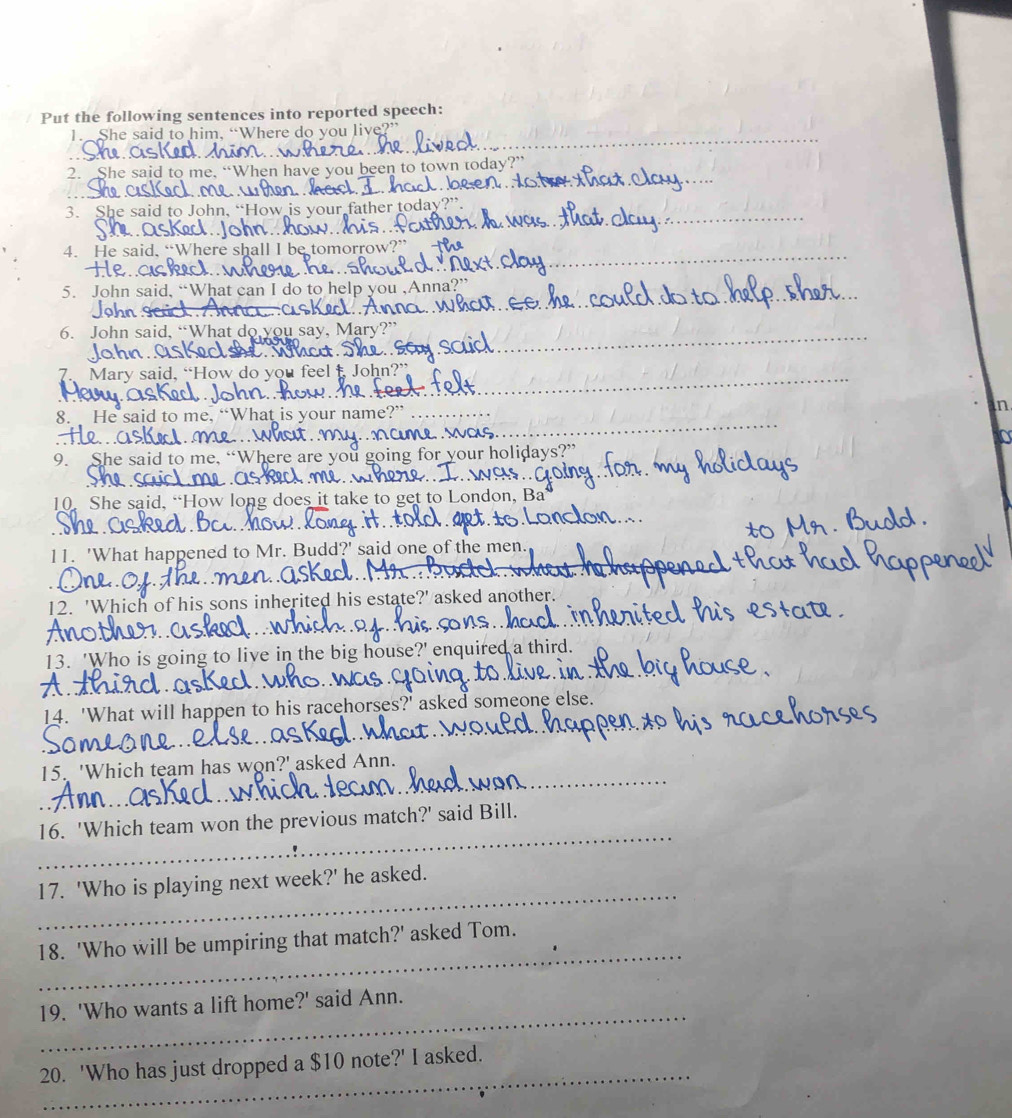 Put the following sentences into reported speech:
1. She said to him, “Where do you live?”
She asked him where he lived
2. She said to me, “When have you been to town today?”
She asked me when had I had been to that day
3. She said to John, “How is your father today?”.
She asked John how his father was that day
4. He said, “Where shall I be tomorrow?”
He asked where he should the next day
5. John said, “What can I do to help you ,Anna?”
John said Anna asked Anna what he could do to help sher
6. John said, “What do you say, Mary?”
John asked Mary what she say said
7. Mary said, “How do you feel , John?”
Mary asked John how he feel felt
8. He said to me, “What is your name?”
He asked me what my name was
9. She said to me, “Where are you going for your holidays?”
She said me asked me where I was going for my holidays
10. She said, “How long does it take to get to London, Ba”
She asked Ba how long it told get to London
11. 'What happened to Mr. Budd?' said one of the men.
One of the men asked Mr. Budd what happened that had happened to Mr. Budd.
12. 'Which of his sons inherited his estate?' asked another.
Another asked which of his sons had inherited his estate.
13. 'Who is going to live in the big house?' enquired a third.
A third asked who was going to live in the big house.
14. 'What will happen to his racehorses?' asked someone else.
Someone else asked what would happen to his racehorses
15. 'Which team has won?' asked Ann.
Ann asked which team had won
16. 'Which team won the previous match?' said Bill.
17. 'Who is playing next week?' he asked.
18. 'Who will be umpiring that match?' asked Tom.
19. 'Who wants a lift home?' said Ann.
20. 'Who has just dropped a $10 note?' I asked.